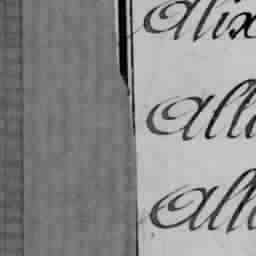 Alix
All
All